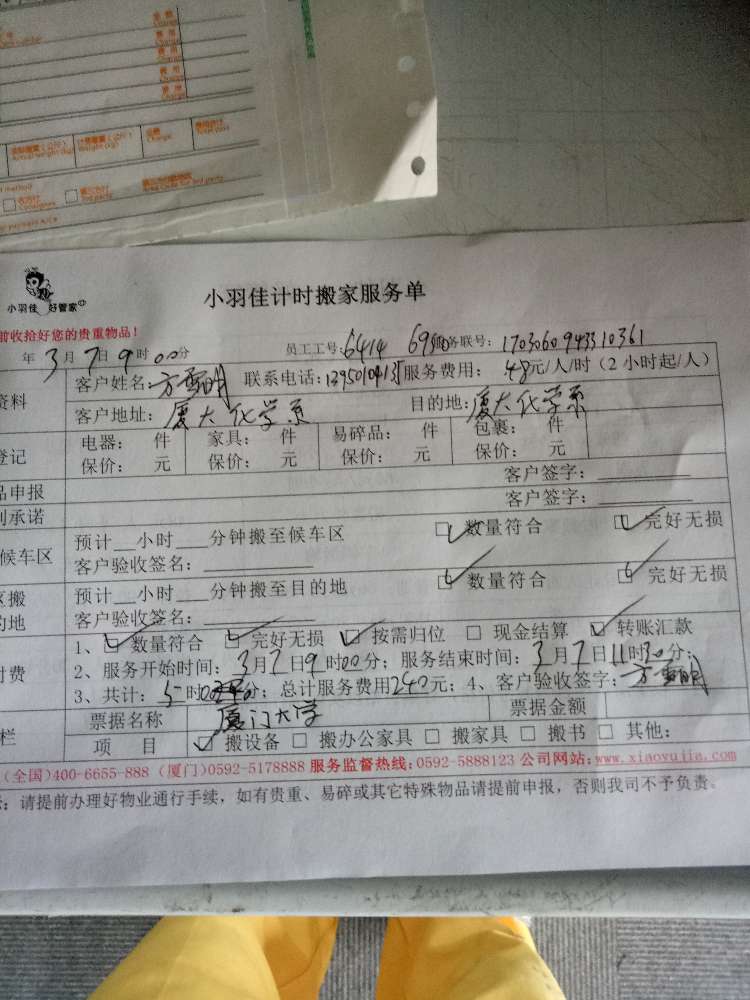 费用
Charge
费用
Charge
费用
Charge
费用
Charge
Weight (kg)
Charge
3rd party
小羽佳 好管家
小羽佳计时搬家服务单
前收拾好您的贵重物品！
年3月7日9时00分 员工工号：6414 务联号：1703060943310361
资料 客户姓名： 联系电话： 服务费用：48元/人/时（2小时起/人）
客户地址：厦大化学系 目的地：厦大化学系
登记 电器： 件 家具： 件 易碎品： 件 包裹： 件
保价： 元 保价： 元 保价： 元 保价： 元
品申报 客户签字：
承诺 客户签字：
候车区 预计__小时___分钟搬至候车区 数量符合 完好无损
客户验收签名：
搬 预计__小时___分钟搬至目的地 数量符合 完好无损
的地 客户验收签名：
付费 1、数量符合 完好无损 按需归位 现金结算 转账汇款
2、服务开始时间：3月7日9时00分；服务结束时间：3月7日11时30分；
3、共计：5时00分；总计服务费用240元；4、客户验收签字：
栏 票据名称 厦门大学 票据金额
项 目 搬设备 搬办公家具 搬家具 搬书 其他：
（全国）400-6655-888（厦门）0592-5178888 服务监督热线：0592-5888123 公司网站：www.xiaoyujia.com
：请提前办理好物业通行手续，如有贵重、易碎或其它特殊物品请提前申报，否则我司不予负责。